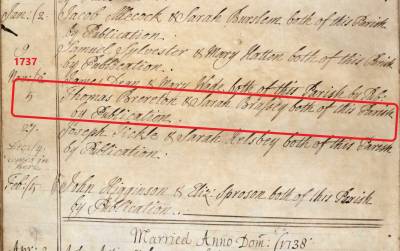 Jan: 12. Jacob Alcock & Sarah Burslem both of this Parish
by Publication.
9 Samuel Sylvester & Mary Hatton both of this Parish
by Publication.
1737
James & Mary Wade both of this Parish by
5 Thomas Brereton & Sarah both of this Parish
by Publication.
29. Joseph Tickle & Sarah Kelsbey both of this Parish
by Publication.
here
Feb: 15 John Higginson & Eliz: Sproson both of this Parish
by Publication.
Married Anno Dom: 1738